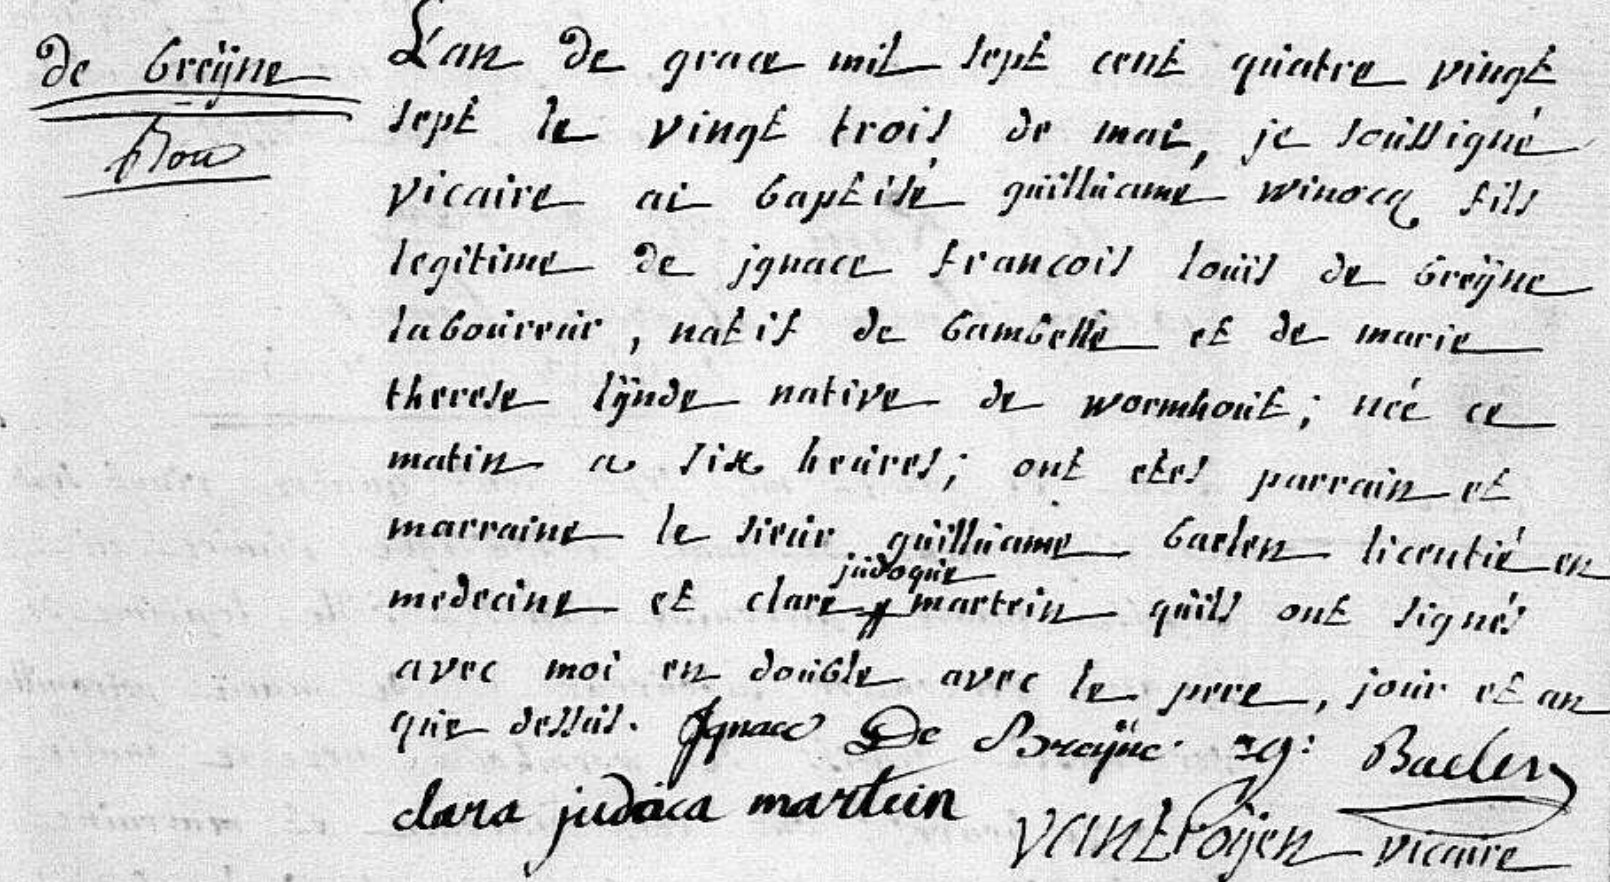 de Breÿne
L'an de grace mil sept cent quatre vingt
sept le vingt trois de mai, je soussigné
vicaire ai baptisé guilliaume winocq fils
legitime de jgnace francois louis de breÿne
laboureur, natif de bambelle et de marie
therese lÿnde native de wormhout; née ce
matin a six heures; ont etes parrain et
marraine le sieur guilliaume baelen licentié en
judoque
medecine et clare martein quils ont signés
avec moi en double avec le pere, jour et an
que dessus. Jgnace De Breÿne. Baelen
clara judoca martein
vantroÿen vicaire